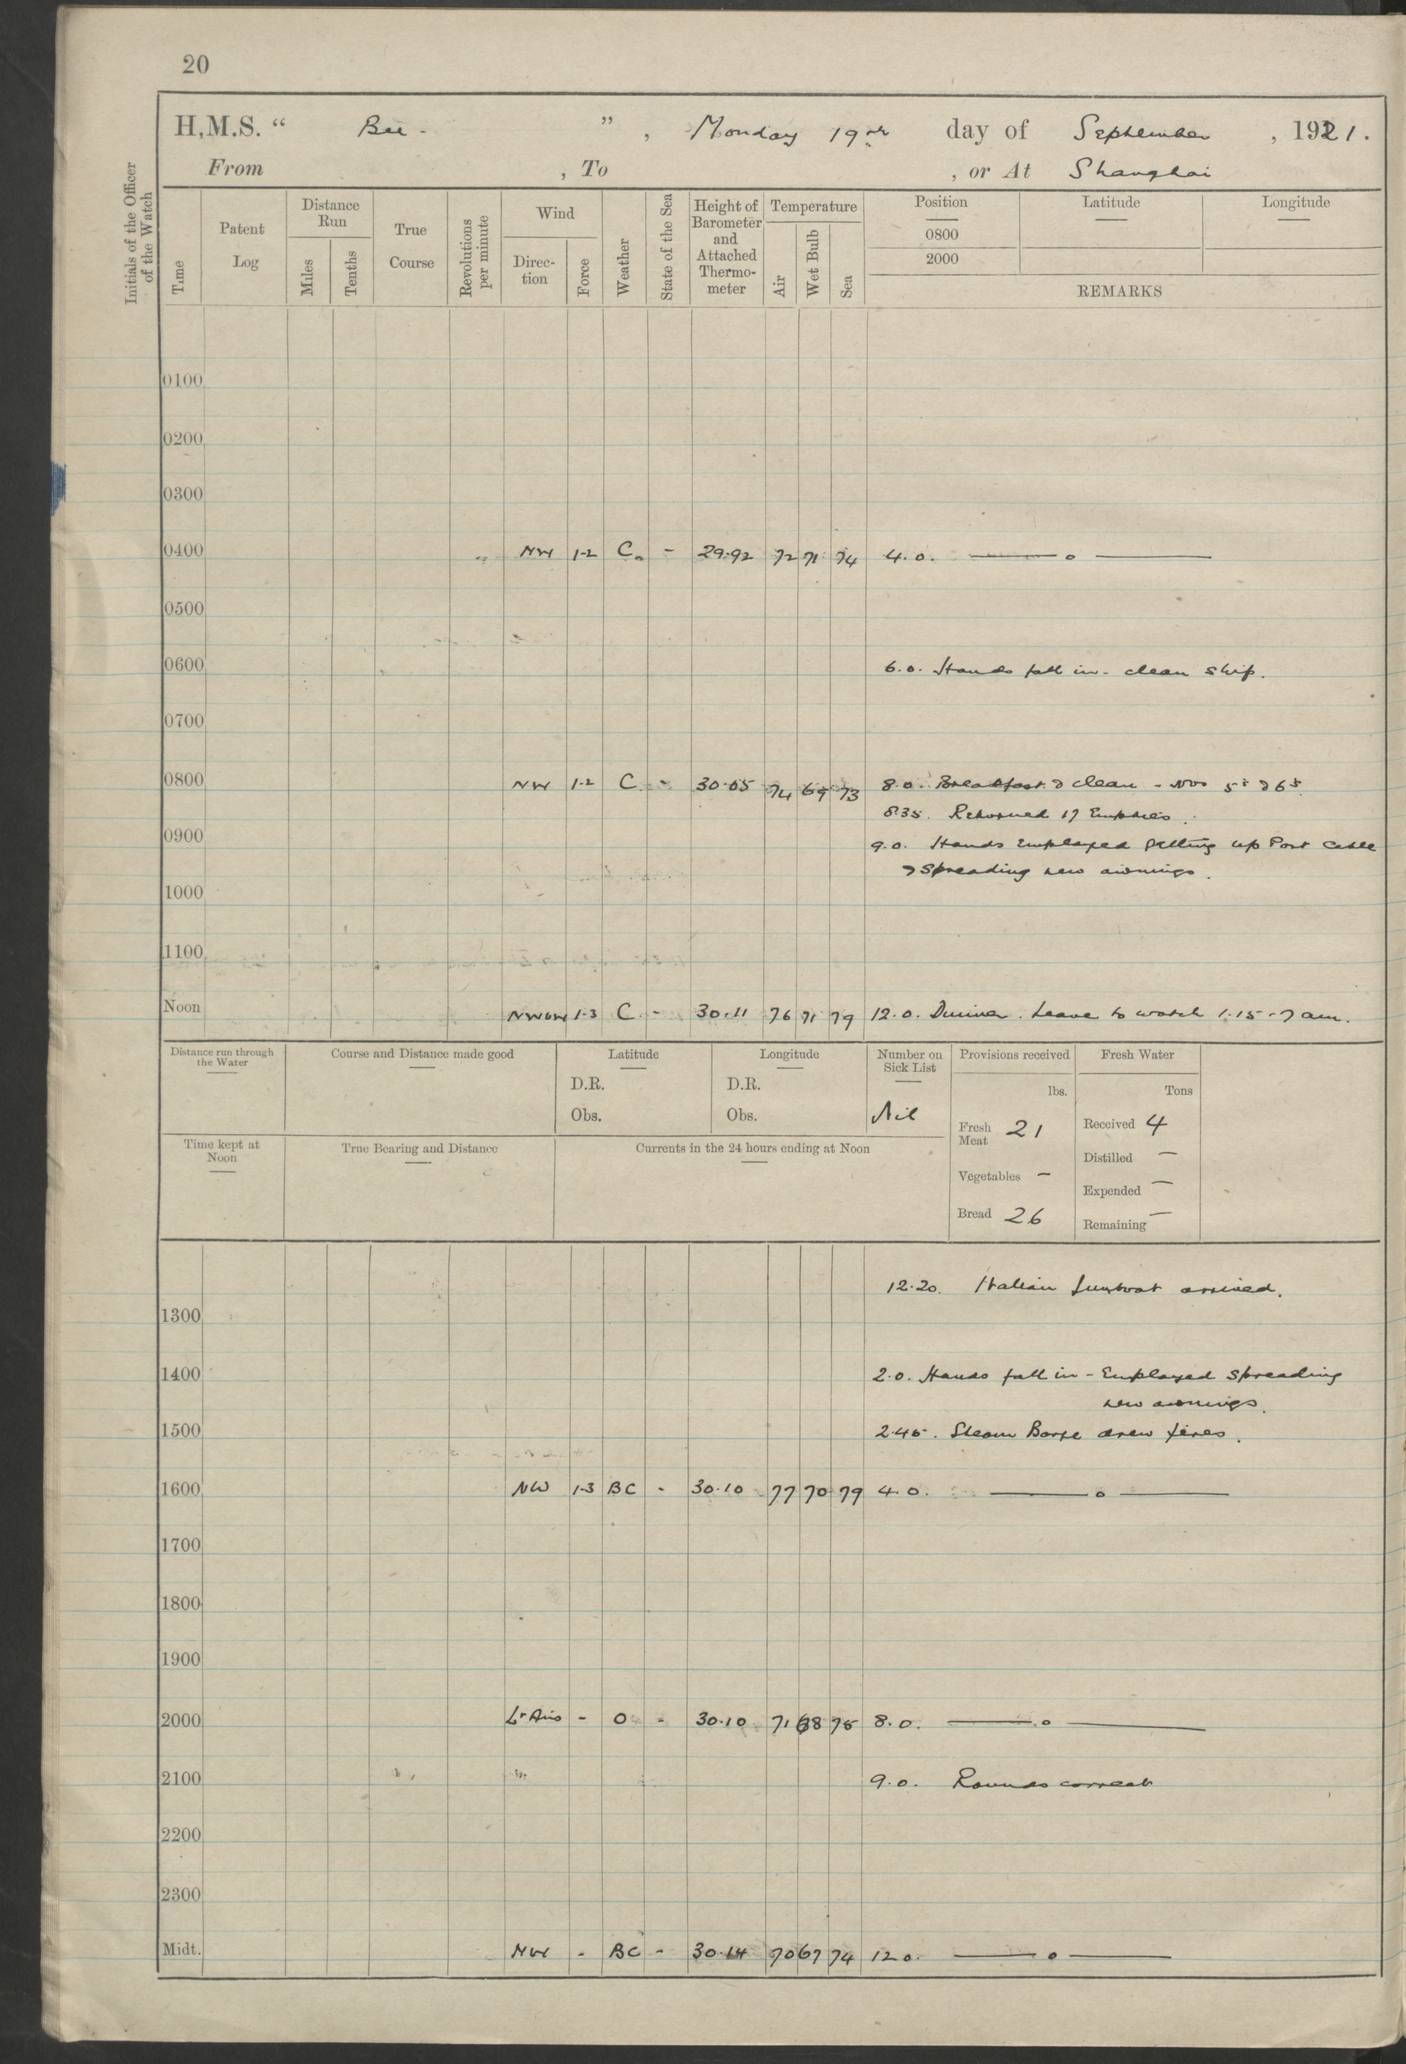 20
H.M.S. " Bee - ", Monday 19th day of September, 1921.
From , To , or At Shanghai
Initials of the Officer of the Watch
Time
Patent Log
Distance Run
Miles
Tenths
True Course
Revolutions per minute
Wind
Direction
Force
Weather
State of the Sea
Height of Barometer and Attached Thermometer
Temperature
Air
Wet Bulb
Sea
Position
0800
2000
Latitude
Longitude
REMARKS
0100
0200
0300
0400 NW 1-2 C. - 29.92 72 71 74 4.0. —— o ——
0500
0600 6.0. Hands fall in - clean ship.
0700
0800 NW 1-2 C - 30.05 74 69 73 8.0. Breakfast & clean - Nos 5s & 6s
8.35. Returned 17 Empties.
0900 9.0. Hands Employed getting up Port Cable
& Spreading new awnings.
1000
1100
Noon NWbW 1-3 C - 30.11 76 71 79 12.0. Dinner. Leave to watch 1.15 - 7 am.
Distance run through the Water
Course and Distance made good
Latitude
D.R.
Obs.
Longitude
D.R.
Obs.
Number on Sick List
Nil
Provisions received
lbs.
Fresh Meat 21
Vegetables -
Bread 26
Fresh Water
Tons
Received 4
Distilled —
Expended —
Remaining —
Time kept at Noon
True Bearing and Distance
Currents in the 24 hours ending at Noon
12.20. Italian Gunboat arrived.
1300
1400 2.0. Hands fall in - Employed spreading
new awnings.
1500 2.45. Steam Barge drew fires.
1600 NW 1-3 BC - 30.10 77 70 79 4.0. —— o ——
1700
1800
1900
2000 Lt Airs - O - 30.10 71 68 75 8.0. —— o ——
2100 9.0. Rounds correct
2200
2300
Midt. NW - BC - 30.14 70 67 74 12.0. —— o ——